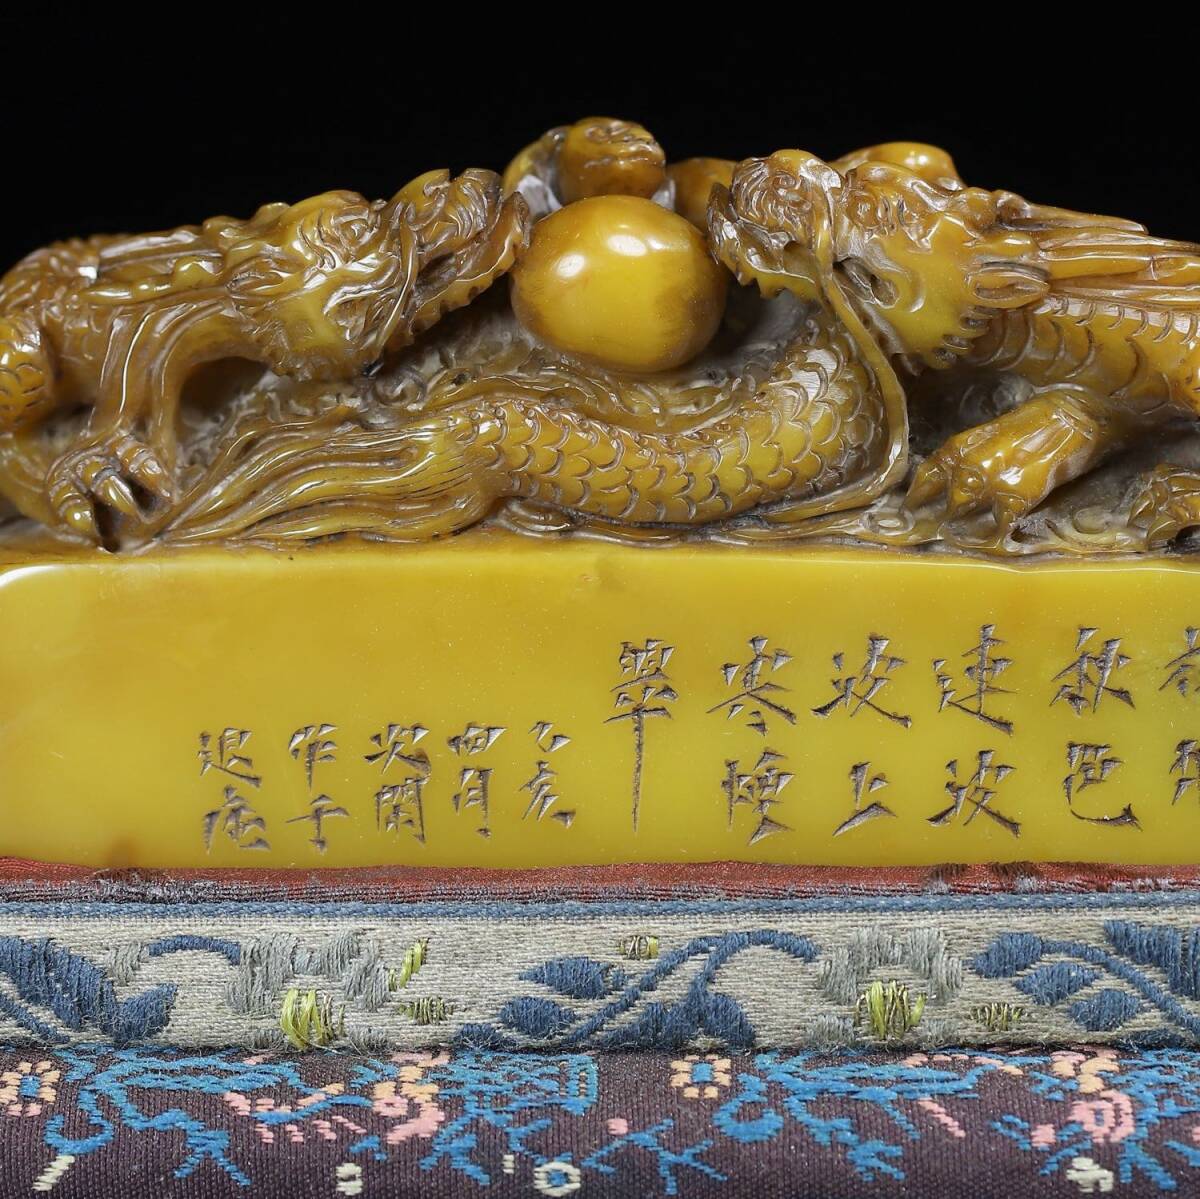 秋色
連波
波上
寒煙
翠
乙亥
四月
次閑
作于
退庵